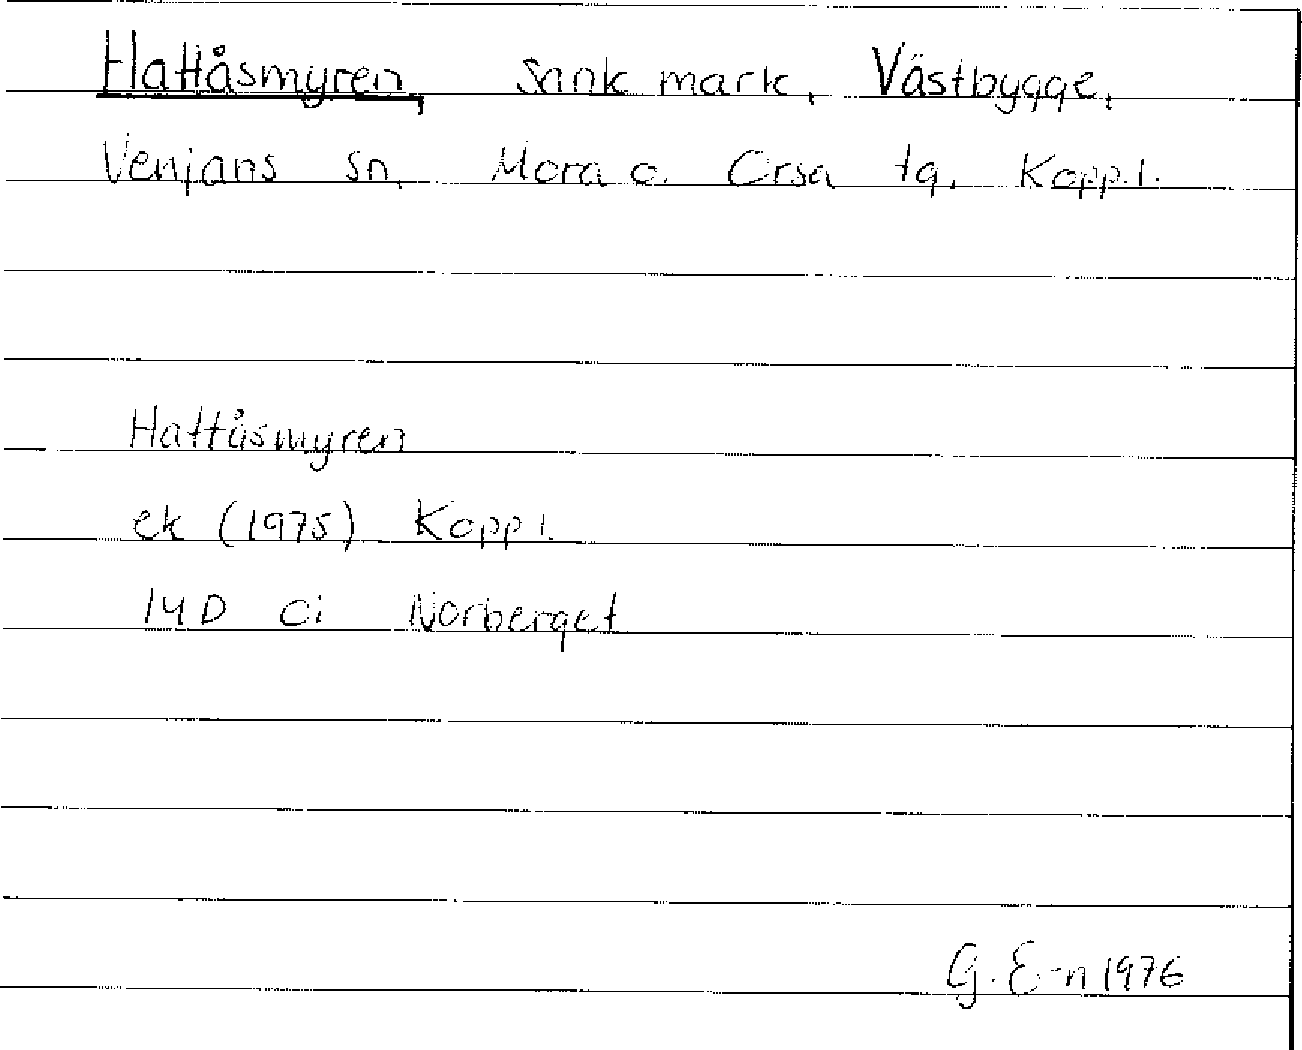 Hattåsmyren, Sank mark, Västbygge,
Venjans sn, Mora o. Orsa tg, Kopp.l.
Hattåsmyren
ek (1975) Kopp l.
14D Ci Norberget
G. E-n 1976